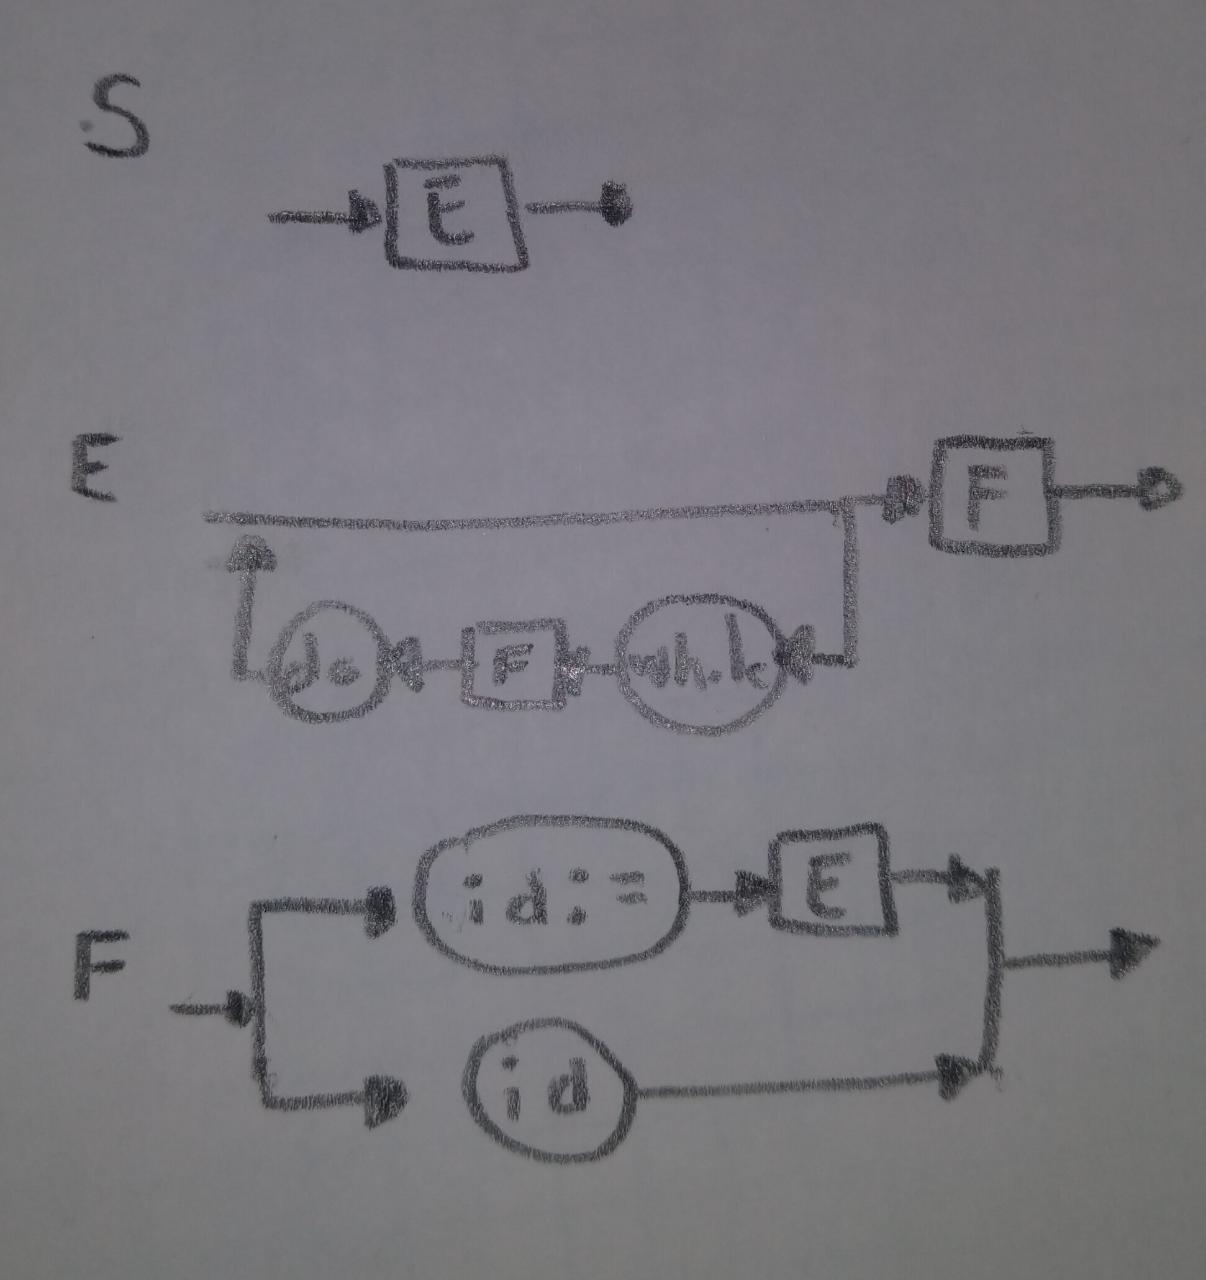 S
E
E
F
do F while
id:= E
F
id